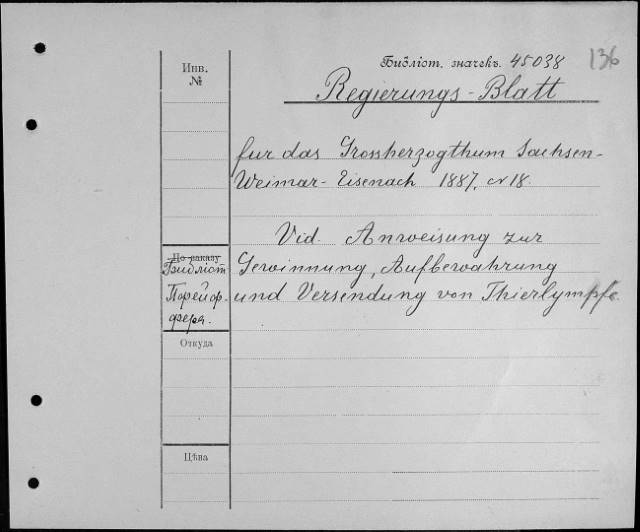 Инв.
№
Библіот. значекъ. 45038
136
Regierungs-Blatt
fur das Grossherzogthum Sachsen-
Weimar-Eisenach 1887, № 18.
Vid. Anweisung zur
Gewinnung, Aufbewahrung
und Versendung von Thierlymphe.
По заказу
Библіот
Порейор-
фера.
Откуда
Цѣна